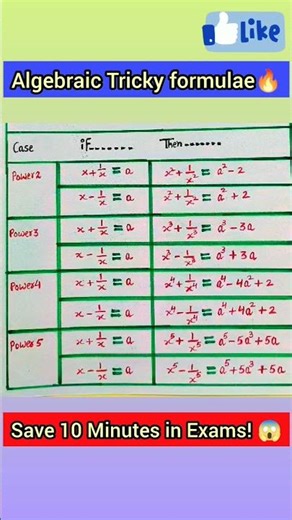 Like
Algebraic Tricky formulae🔥
Case if------- Then-------
Power2 x + 1/x = a x² + 1/x² = a² - 2
x - 1/x = a x² + 1/x² = a² + 2
Power3 x + 1/x = a x³ + 1/x³ = a³ - 3a
x - 1/x = a x³ - 1/x³ = a³ + 3a
Power4 x + 1/x = a x⁴ + 1/x⁴ = a⁴ - 4a² + 2
x - 1/x = a x⁴ - 1/x⁴ = a⁴ + 4a² + 2
Power5 x + 1/x = a x⁵ + 1/x⁵ = a⁵ - 5a³ + 5a
x - 1/x = a x⁵ - 1/x⁵ = a⁵ + 5a³ + 5a
Save 10 Minutes in Exams! 😱